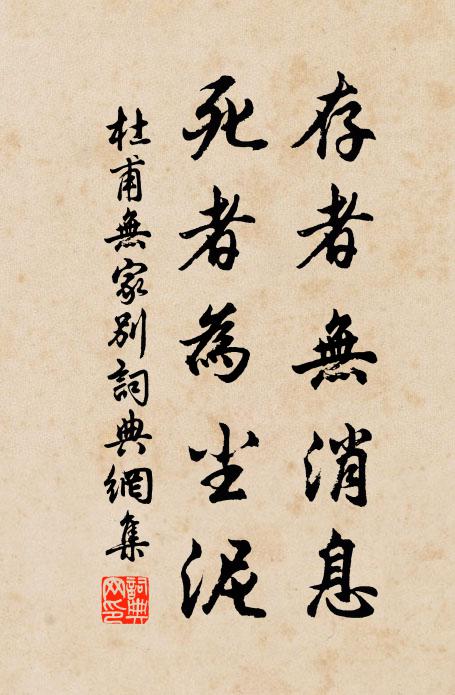 存者無消息
死者為尘泥
杜甫無家別詞典網集
詞典网印